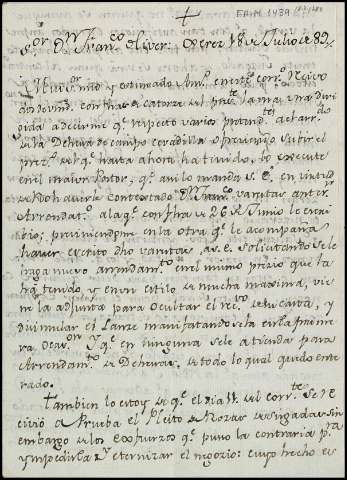 EAIM 1439
S.or D.n Fran.co Oliver. Xerez 18 de Julio de 89.
Mui s.or mio y estimado Am.o en este corr.o Recivo
dos de vm.d con fha de catorze del pres.te la una y na diri
gida a decirme q.e respecto varios pretend.tes al arr.do
de la Dehesa de campo cerradilla ofreciendo subir el
precio del q.e hasta ahora ha tenido, lo execute
en el maior Postor, q.e asi lo manda S. E. en virtud
de lo q.e havia contextado D.n Fran.co Varitas anter.or
Arrendat.o a la q.e con fha de 26 de Junio le escri
bio; previniendome en la otra q.e le acompaña
haver escrito dho Varitas, a S. E. solicitando se le
haga nuevo arrendam.to en el mismo precio que la
ha tenido y en un estilo de mucha maxima, vie
ne la adjunta para ocultar el re de su carta, y
disimular el Lanze manifestando se ha en la prime
ra Ocas.on y q.e en ninguna se le atienda para
Arrendam.to de Dehesas, de todo lo qual quedo ente
rado.
Tambien lo estoy de q.e el dia 11 del corr.te se re
civió a Prueba el Pleito de Rozas desengadas sin
embargo de los esfuerzos q.e puso la contraria p.te
y impedirla y eternizar el negozio: cuyo hecho es